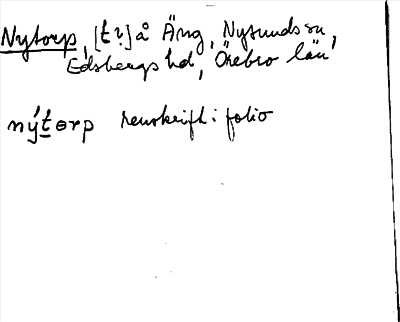 Nytorp, [t?] å Äng, Nysunds sn,
Edsbergs hd, Örebro län
nýtɵrp renskrift i folio